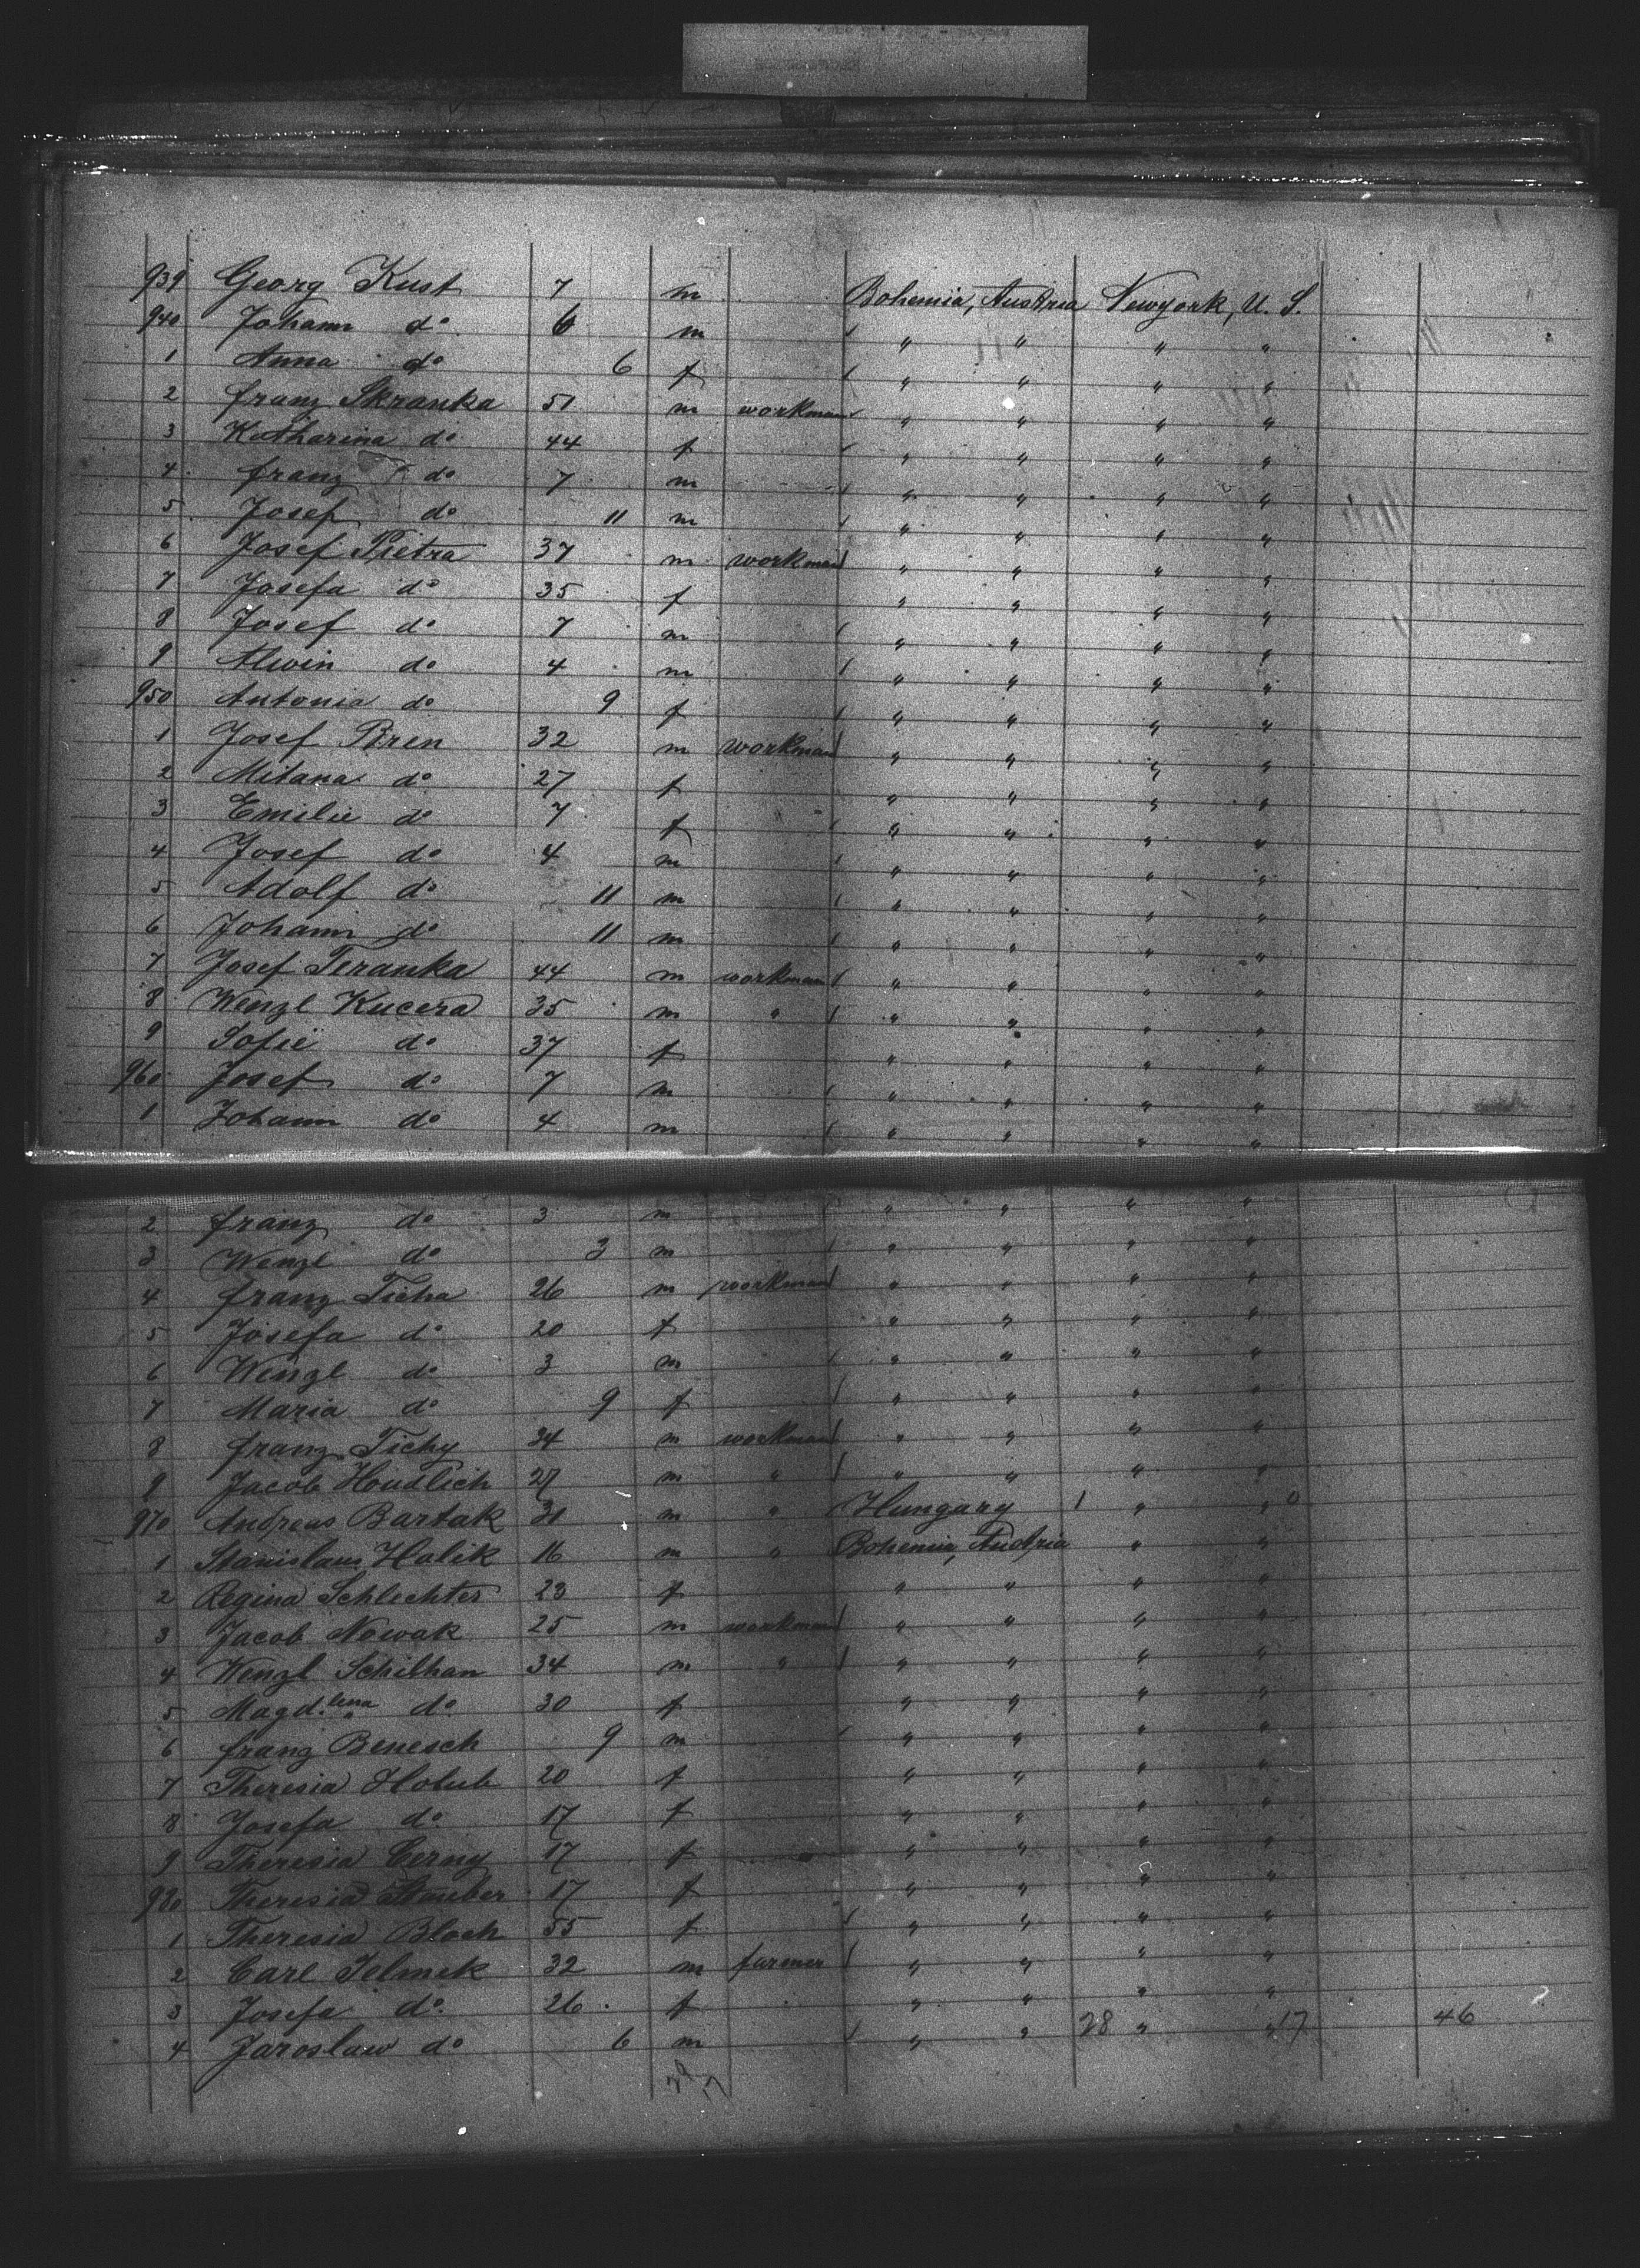 939 Georg Kust 7 m Bohemia, Austria Newyork, U. S.
940 Johann do 6 m " " " "
1 Anna do 6 f " " " "
2 Franz Skranka 51 m workman " " " "
3 Katharina do 44 f " " " "
4 Franz do 7 m " " " "
5 Josef do 11 m " " " "
6 Josef Pietra 37 m workman " " " "
7 Josefa do 35 f " " " "
8 Josef do 7 m " " " "
9 Alwin do 4 m " " " "
950 Antonia do 9 f " " " "
1 Josef Bren 32 m workman " " " "
2 Milana do 27 f " " " "
3 Emilie do 7 f " " " "
4 Josef do 4 m " " " "
5 Adolf do 11 m " " " "
6 Johann do 11 m " " " "
7 Josef Teranka 44 m workman " " " "
8 Wenzl Kucera 35 m " " " " "
9 Sofie do 37 f " " " "
960 Josef do 7 m " " " "
1 Johann do 4 m " " " "
2 Franz do 3 m " " " "
3 Wenzl do 3 m " " " "
4 Franz Ticha 26 m workman " " " "
5 Josefa do 20 f " " " "
6 Wenzl do 3 m " " " "
7 Maria do 9 f " " " "
8 Franz Tichy 34 m workman " " " "
9 Jacob Houdlich 27 m " " " " "
970 Andreas Bartak 31 m " Hungary 1 " "
1 Stanislaus Halik 16 m " Bohemia, Austria " "
2 Regina Schlechter 23 f " " " "
3 Jacob Nowak 25 m workman " " " "
4 Wenzl Schilhan 34 m " " " " "
5 Magd.lena do 30 f " " " "
6 Franz Benesch 9 m " " " "
7 Theresia Holub 20 f " " " "
8 Josefa do 17 f " " " "
9 Theresia Cerny 17 f " " " "
980 Theresia Stauber 17 f " " " "
1 Theresia Bloch 55 f " " " "
2 Carl Jelinek 32 m farmer " " " "
3 Josefa do 26 f " " " "
4 Jaroslaw do 6 m " " 28 " " 17 46